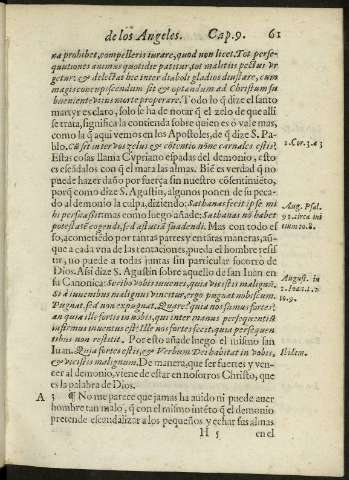 de los Angeles. Cap. 9. 61
na prohibet, compelleris iurare, quod non licet. Tot perse-
quutiones animus quotidie patitur, tot malitiis pectus vr
getur: & delectat hic inter diaboli gladios diu stare, cum
magis concupiscendum sit & optandum ad Christum su
bueniente citius morte properare. Todo lo q̃ dize el santo
martyr es claro, solo se ha de notar q̃ el zelo de que alli
se trata, significa la contienda sobre quien es ò vale mas,
como la q̃ aqui vemos en los Apostoles, de q̃ dize S. Pa-
blo. Cũ sit inter vos zelus & cõtentio nõne carnales estis?
1. Cor. 3. a 3
Estas cosas llama Cypriano espadas del demonio, esto
es escãdalos con q̃ el mata las almas. Biẽ es verdad q̃ no
puede hazer daño por fuerça sin nuestro cõsentimiẽto,
porq̃ como dize S. Agustin, algunos ponen de su peca-
do al demonio la culpa, diziendo; Sathanas fecit ipse mi
hi persuasit:
mas como luego añade; Sathanas nõ habet
potestatẽ cogendi, sed astutiã suadendi. Mas con todo es
Aug. Psal.
91. circa ini
tium to. 8.
so, acometiẽdo por tantas partes y en tãtas maneras, aũ-
que a cada vna de las tentaciones, pueda el hombre resis
tir, no puede a todas juntas sin particular socorro de
Dios. Assi dize S. Agustin sobre aquello de san Iuan en
su Canonica: Scribo vobis iuuenes, quia vicistis malignũ.
Si à iuuenibus malignus vincitur, ergo pugnat nobiscum.
Pugnat, sed non expugnat. Quare? quia nos sumus fortes:
August. in
1. Ioan. t. 2.
to. 9.
an quia ille fortis in nobis, qui inter manus persequentiũ
infirmus inuentus est? Ille nos fortes fecit, qui persequen
tibus non restitit. Por esto añade luego el mismo san
Iuan. Quia fortes estis, & Verbum Dei habitat in vobis,
Ibidem.
& vicistis malignum. De manera, que ser fuertes y ven-
cer al demonio, viene de estar en nosotros Christo, que
es la palabra de Dios.
A 3 ¶ No me parece que jamas ha auido ni puede auer
hombre tan malo, q̃ con el mismo intẽto q̃ el demonio
pretende escandalizar a los pequeños y echar sus almas
H 5 en el